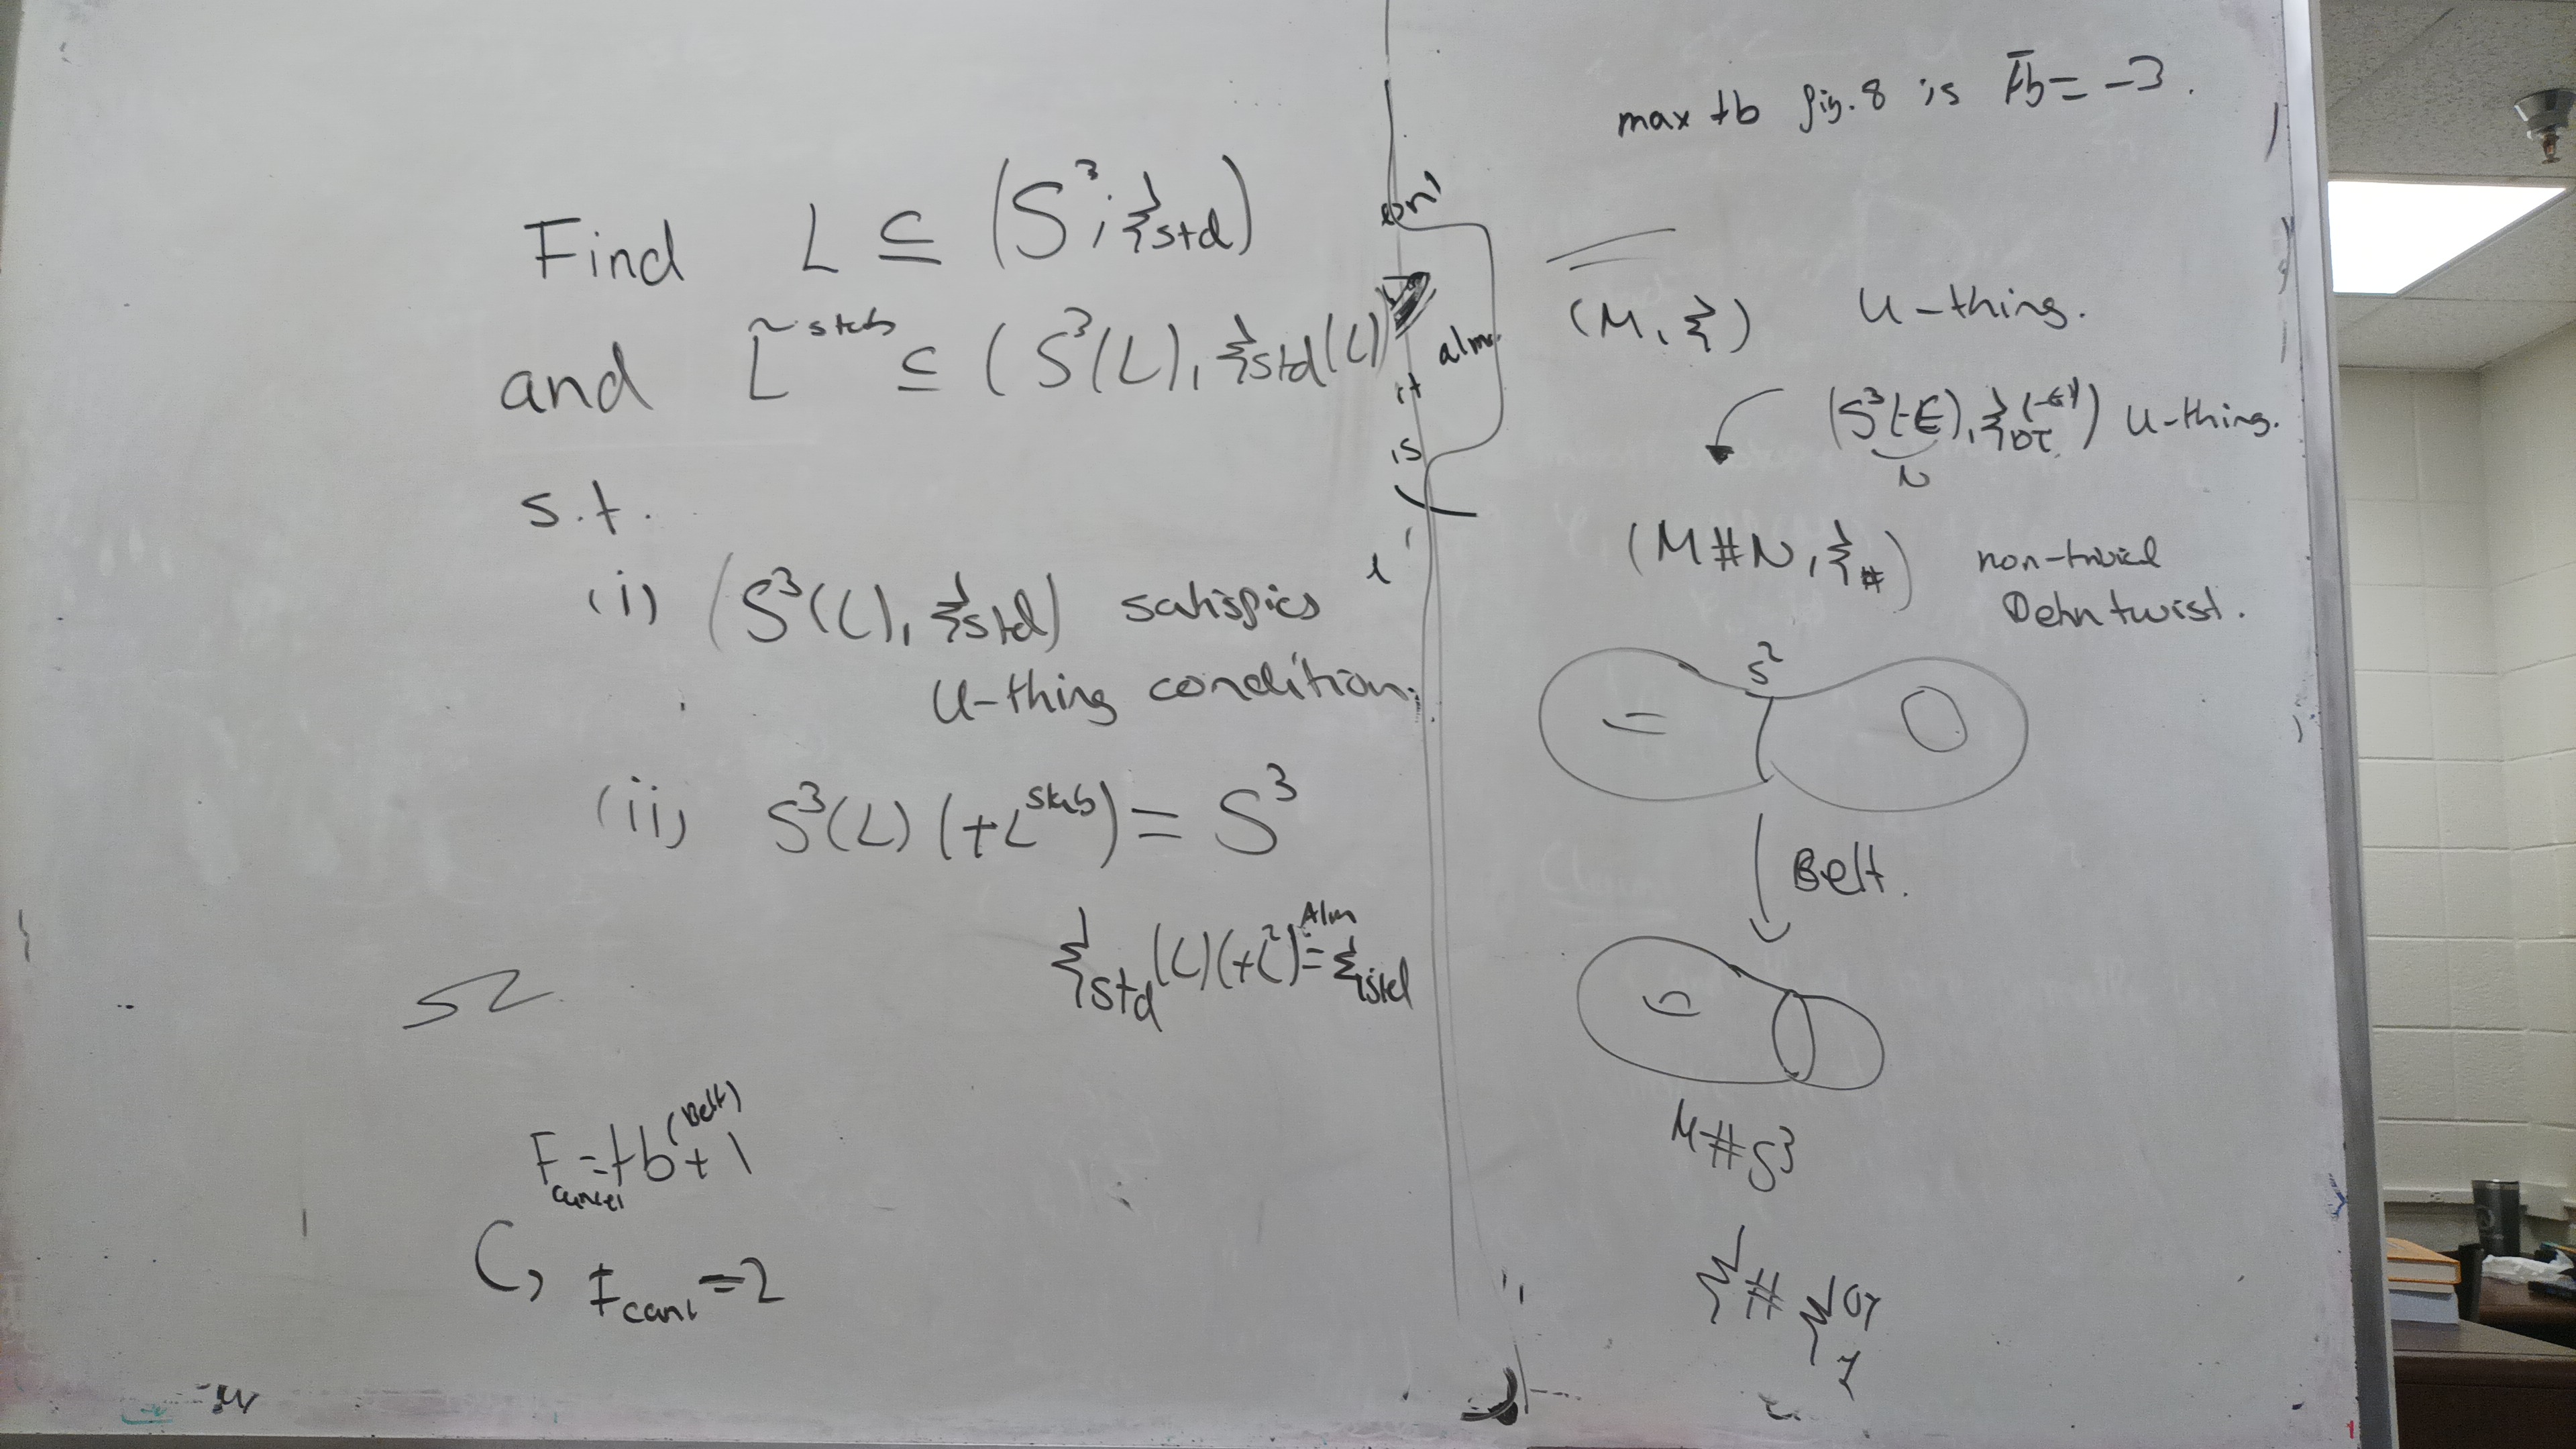 Find L ⊆ (S³, ξ_std)
and L̃^stab ⊆ (S³(L), ξ_std(L))
s.t.
(i) (S³(L), ξ_std) satisfies
U-thing condition.
(ii) S³(L) (+L^stab) = S³
ξ_std(L)(+L̃) = ξ_std
Alm
F = tb(Belt) + 1
cancel
F_canc = 2
alm.
it
is
max tb fig. 8 is t̄b = -3.
(M, ξ) U-thing.
U-thing.
N
(M#N, ξ_#) non-trivial
Dehn twist.
S²
Belt.
M#S³